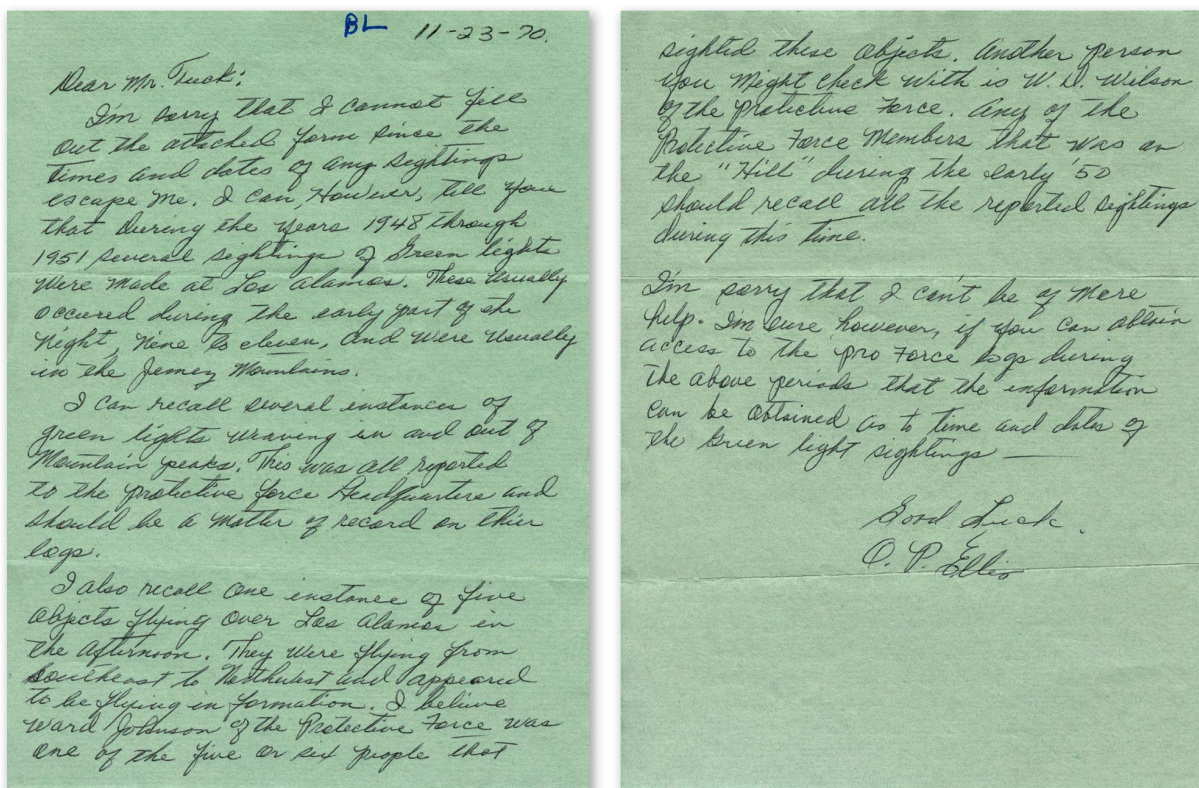 BL 11-23-70.
Dear Mr. Tuck:
I'm sorry that I cannot fill
out the attached form since the
times and dates of any sightings
escape me. I can, However, tell you
that during the years 1948 through
1951 several sightings of Green lights
were made at Los Alamos. These usually
occured during the early part of the
night, nine to eleven, and were usually
in the Jemez Mountains.
I can recall several instances of
green lights weaving in and out of
Mountain peaks. This was all reported
to the protective force Headquarters and
should be a matter of record on thier
logs.
I also recall one instance of five
objects flying over Los Alamos in
the afternoon. They were flying from
Southeast to Northwest and appeared
to be flying in formation. I believe
Ward Johnson of the Protective Force was
one of the five or six people that
sighted these objects. Another person
you might check with is W. D. Wilson
of the Protective Force. Any of the
Protective Force Members that was on
the "Hill" during the early '50
should recall all the reported sightings
during this time.
I'm sorry that I can't be of more
help. I'm sure however, if you can obtain
access to the pro Force logs during
the above periods that the information
can be obtained as to time and dates of
the Green light sightings —
Good Luck.
O. P. Ellis